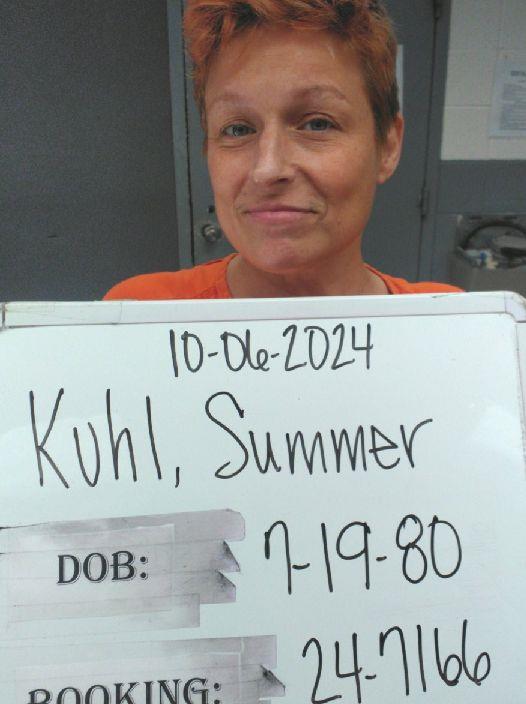 10-06-2024
Kuhl, Summer
DOB: 7-19-80
BOOKING: 24-7166